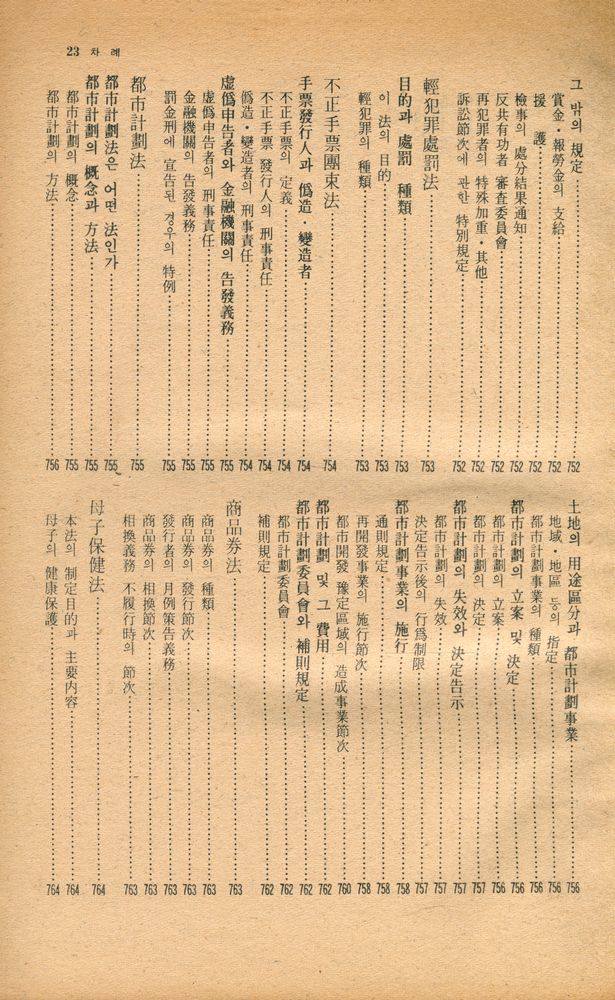 23 차 례
그 밖의 規定 752
賞金・報勞金의 支給 752
援 護 752
檢事의 處分結果通知 752
反共有功者 審査委員會 752
再犯罪者의 特殊加重・其他 752
訴訟節次에 관한 特別規定 752
輕犯罪處罰法 753
目的과 處罰 種類 753
이 法의 目的 753
輕犯罪의 種類 753
不正手票團束法 754
手票發行人과 僞造・變造者 754
不正手票의 定義 754
不正手票 發行人의 刑事責任 754
僞造・變造者의 刑事責任 754
虛僞申告者와 金融機關의 告發義務 755
虛僞申告者의 刑事責任 755
金融機關의 告發義務 755
罰金刑에 宣告된 경우의 特例 755
都市計劃法 755
都市計劃法은 어떤 法인가 755
都市計劃의 概念과 方法 755
都市計劃의 概念 755
都市計劃의 方法 756
土地의 用途區分과 都市計劃事業 756
地域・地區 등의 指定 756
都市計劃事業의 種類 756
都市計劃의 立案 및 決定 756
都市計劃의 立案 756
都市計劃의 決定 757
都市計劃의 失效와 決定告示 757
都市計劃의 失效 757
決定告示後의 行爲制限 757
都市計劃事業의 施行 758
通則規定 758
再開發事業의 施行節次 758
都市開發 豫定區域의 造成事業節次 760
都市計劃 및 그 費用 762
都市計劃委員會와 補則規定 762
都市計劃委員會 762
補則規定 762
商品券法 763
商品券의 種類 763
商品券의 發行節次 763
發行者의 月例策告義務 763
商品券의 相換節次 763
相換義務 不履行時의 節次 763
母子保健法 764
本法의 制定目的과 主要內容 764
母子의 健康保護 764